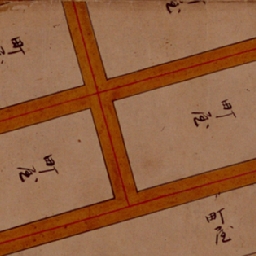 町屋
町屋
町屋
町屋